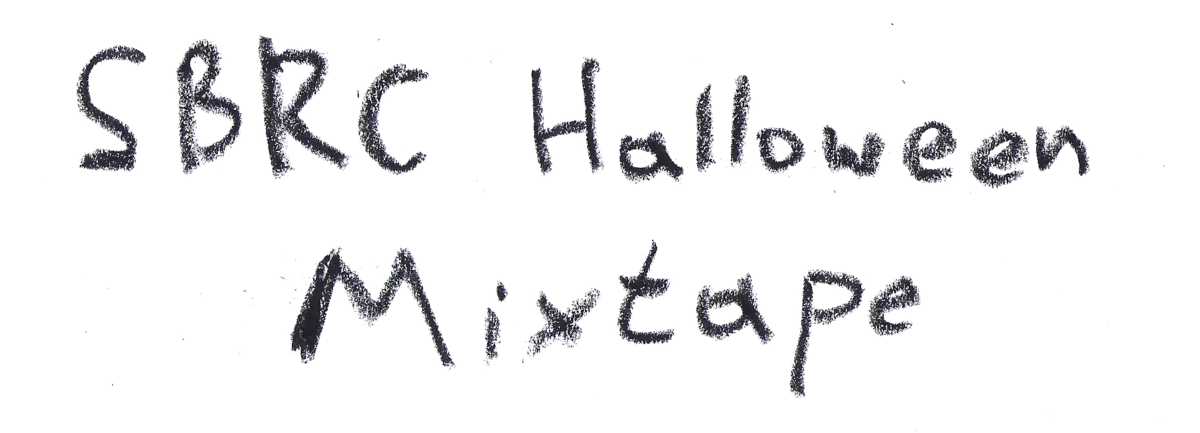 SBRC Halloween
Mixtape